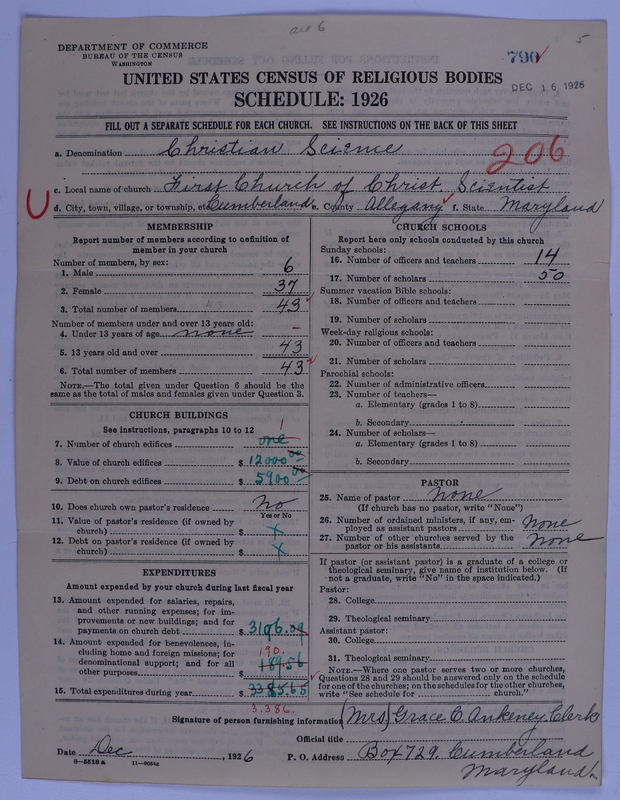 are 6
5
DEPARTMENT OF COMMERCE
BUREAU OF THE CENSUS
WASHINGTON
790
DEC 16 1926
UNITED STATES CENSUS OF RELIGIOUS BODIES
SCHEDULE: 1926
FILL OUT A SEPARATE SCHEDULE FOR EACH CHURCH. SEE INSTRUCTIONS ON THE BACK OF THIS SHEET
a. Denomination Christian Science
206
c. Local name of church First Church of Christ, Scientist
d. City, town, village, or township, etc. Cumberland e. County Allegany f. State Maryland
MEMBERSHIP
Report number of members according to definition of
member in your church
Number of members, by sex:
1. Male 6
2. Female 37
3. Total number of members 43
Number of members under and over 13 years old:
4. Under 13 years of age none –
5. 13 years old and over 43
6. Total number of members 43
NOTE.—The total given under Question 6 should be the
same as the total of males and females given under Question 3.
CHURCH BUILDINGS
See instructions, paragraphs 10 to 12
1
7. Number of church edifices one
8. Value of church edifices $ 12000 00
9. Debt on church edifices $ 5900 00
10. Does church own pastor's residence No
Yes or No
11. Value of pastor's residence (if owned by
church) $ x
12. Debt on pastor's residence (if owned by
church) $ x
EXPENDITURES
Amount expended by your church during last fiscal year
13. Amount expended for salaries, repairs,
and other running expenses; for im-
provements or new buildings; and for
payments on church debt $ 3196.09
14. Amount expended for benevolences, in-
cluding home and foreign missions; for
denominational support; and for all
other purposes $ 189.56
190.
15. Total expenditures during year $ 3385.65
3.386.
CHURCH SCHOOLS
Report here only schools conducted by this church
Sunday schools:
16. Number of officers and teachers 14
17. Number of scholars 50
Summer vacation Bible schools:
18. Number of officers and teachers
19. Number of scholars
Week-day religious schools:
20. Number of officers and teachers
21. Number of scholars
Parochial schools:
22. Number of administrative officers
23. Number of teachers—
a. Elementary (grades 1 to 8)
b. Secondary
24. Number of scholars—
a. Elementary (grades 1 to 8)
b. Secondary
PASTOR
25. Name of pastor None
(If church has no pastor, write "None")
26. Number of ordained ministers, if any, em-
ployed as assistant pastors None
27. Number of other churches served by the
pastor or his assistants None
If pastor (or assistant pastor) is a graduate of a college or
theological seminary, give name of institution below. (If
not a graduate, write "No" in the space indicated.)
Pastor:
28. College
29. Theological seminary
Assistant pastor:
30. College
31. Theological seminary
NOTE.—Where one pastor serves two or more churches,
Questions 28 and 29 should be answered only on the schedule
for one of the churches; on the schedules for the other churches,
write "See schedule for church."
Signature of person furnishing information (Mrs) Grace C. Ankeney, Clerk
Official title
Date Dec , 1926 P. O. Address Box 729. Cumberland
Maryland
8—5518 a 11—9054a